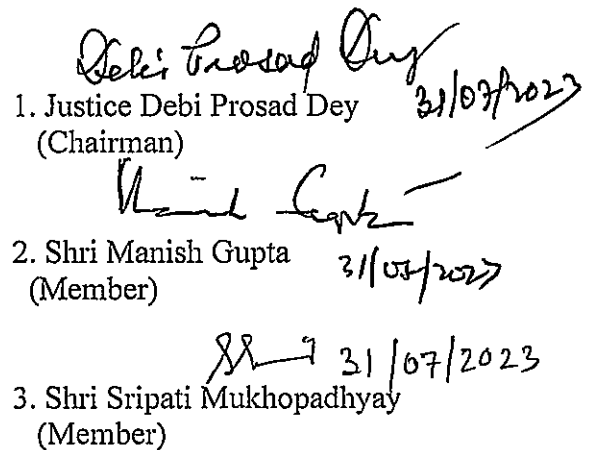 Debi Prosad Dey
1. Justice Debi Prosad Dey 31/07/2023
(Chairman)
Manish Gupta
2. Shri Manish Gupta
(Member)
31/07/2023
3. Shri Sripati Mukhopadhyay
(Member)